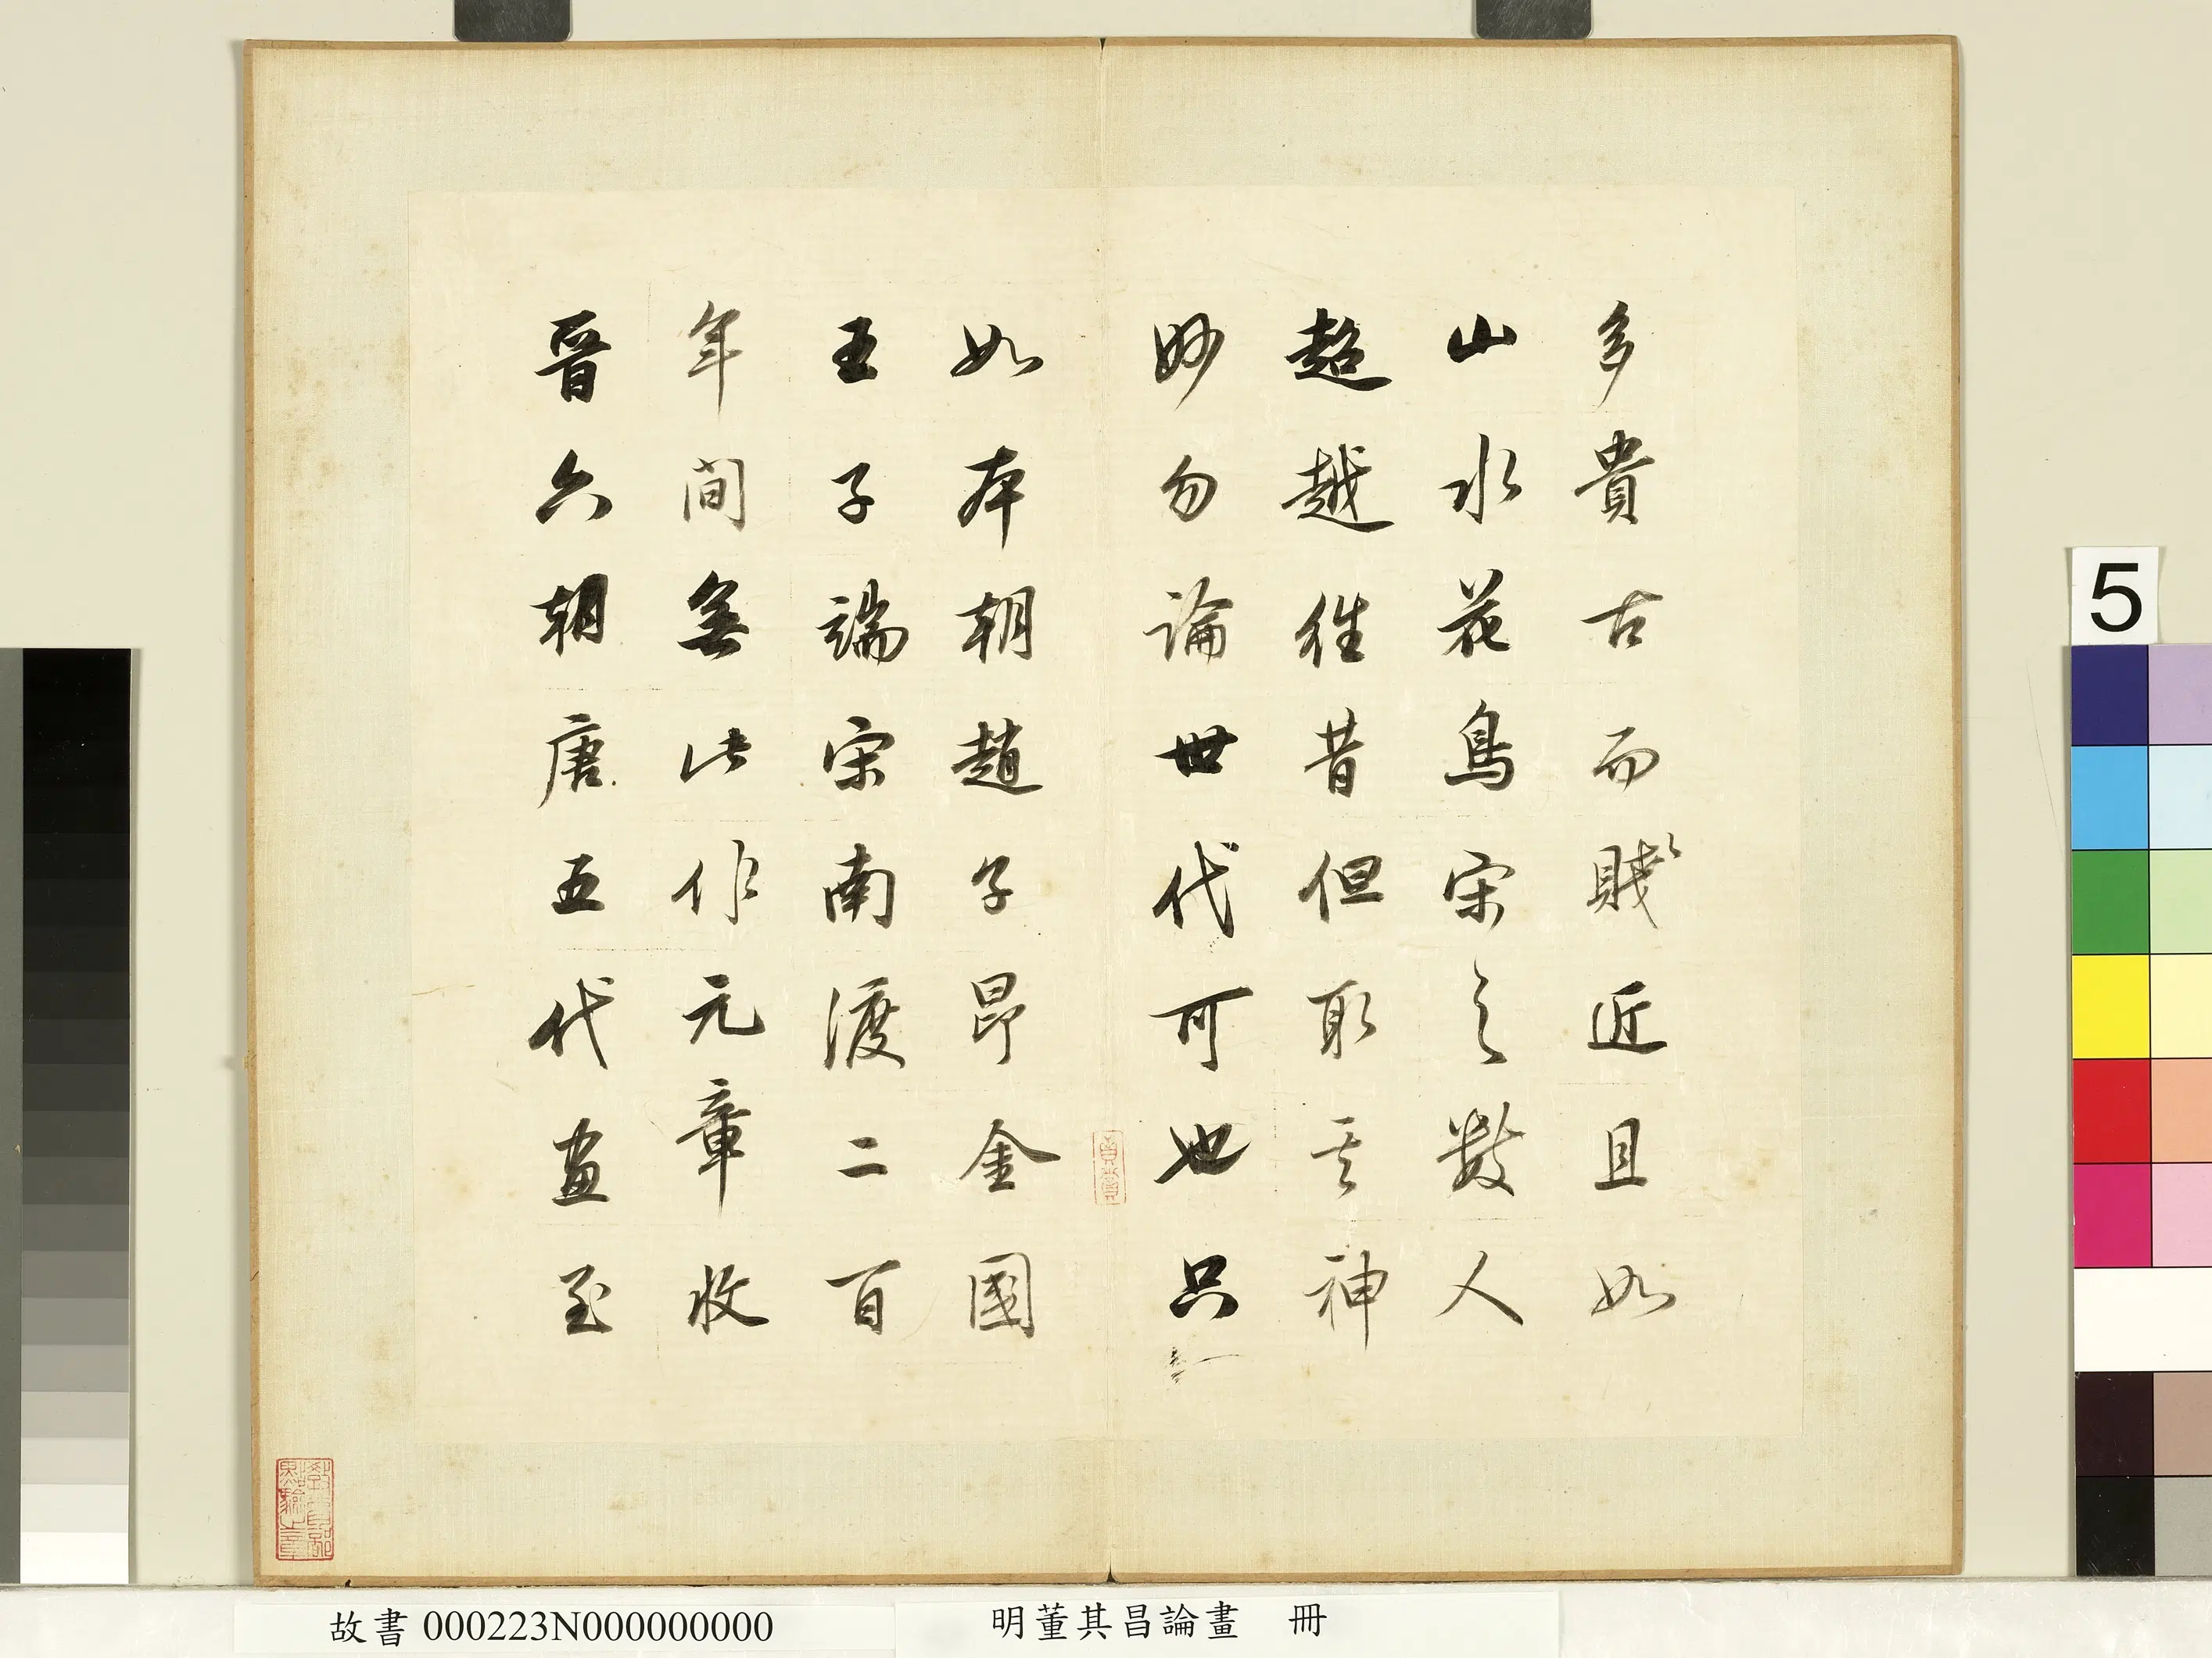 多貴古而賤近且如
山水花鳥宋之數人
超越往昔但取其神
妙勿論世代可也只
如本朝趙子昂金國
王子端宋南渡二百
年間無此作元章收
晉六朝唐五代畫至
教育部
點驗之章
5
故書000223N000000000
明董其昌論畫 冊